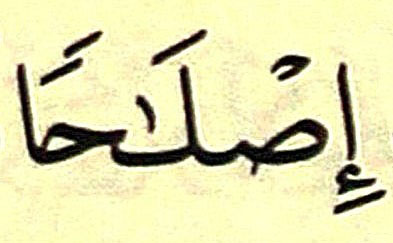 إِصْلَـٰحًا